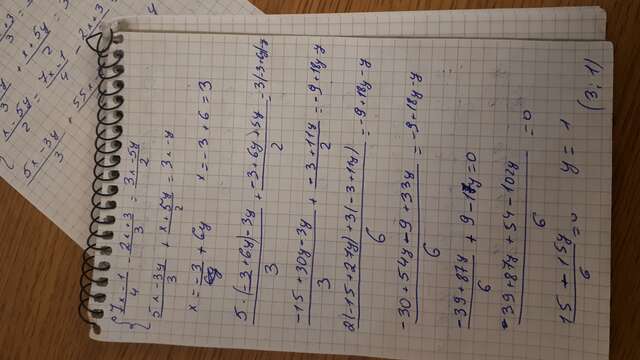 { (7x-1)/4 - (2x+3)/3 = (3x-5y)/2
{ (5x-3y)/3 + (x+5y)/2 = 3x-y
x = -3 + 6y x = -3+6 = 3
(5·(-3+6y)-3y)/3 + (-3+6y+5y)/2 = 3(-3+6y)-y
(-15+30y-3y)/3 + (-3+11y)/2 = -9+18y-y
(2(-15+27y)+3(-3+11y))/6 = -9+18y-y
(-30+54y-9+33y)/6 = -9+18y-y
(-39+87y)/6 + 9-17y=0
(-39+87y+54-102y)/6 =0
(15-15y)/6 =0 y=1 (3;1)